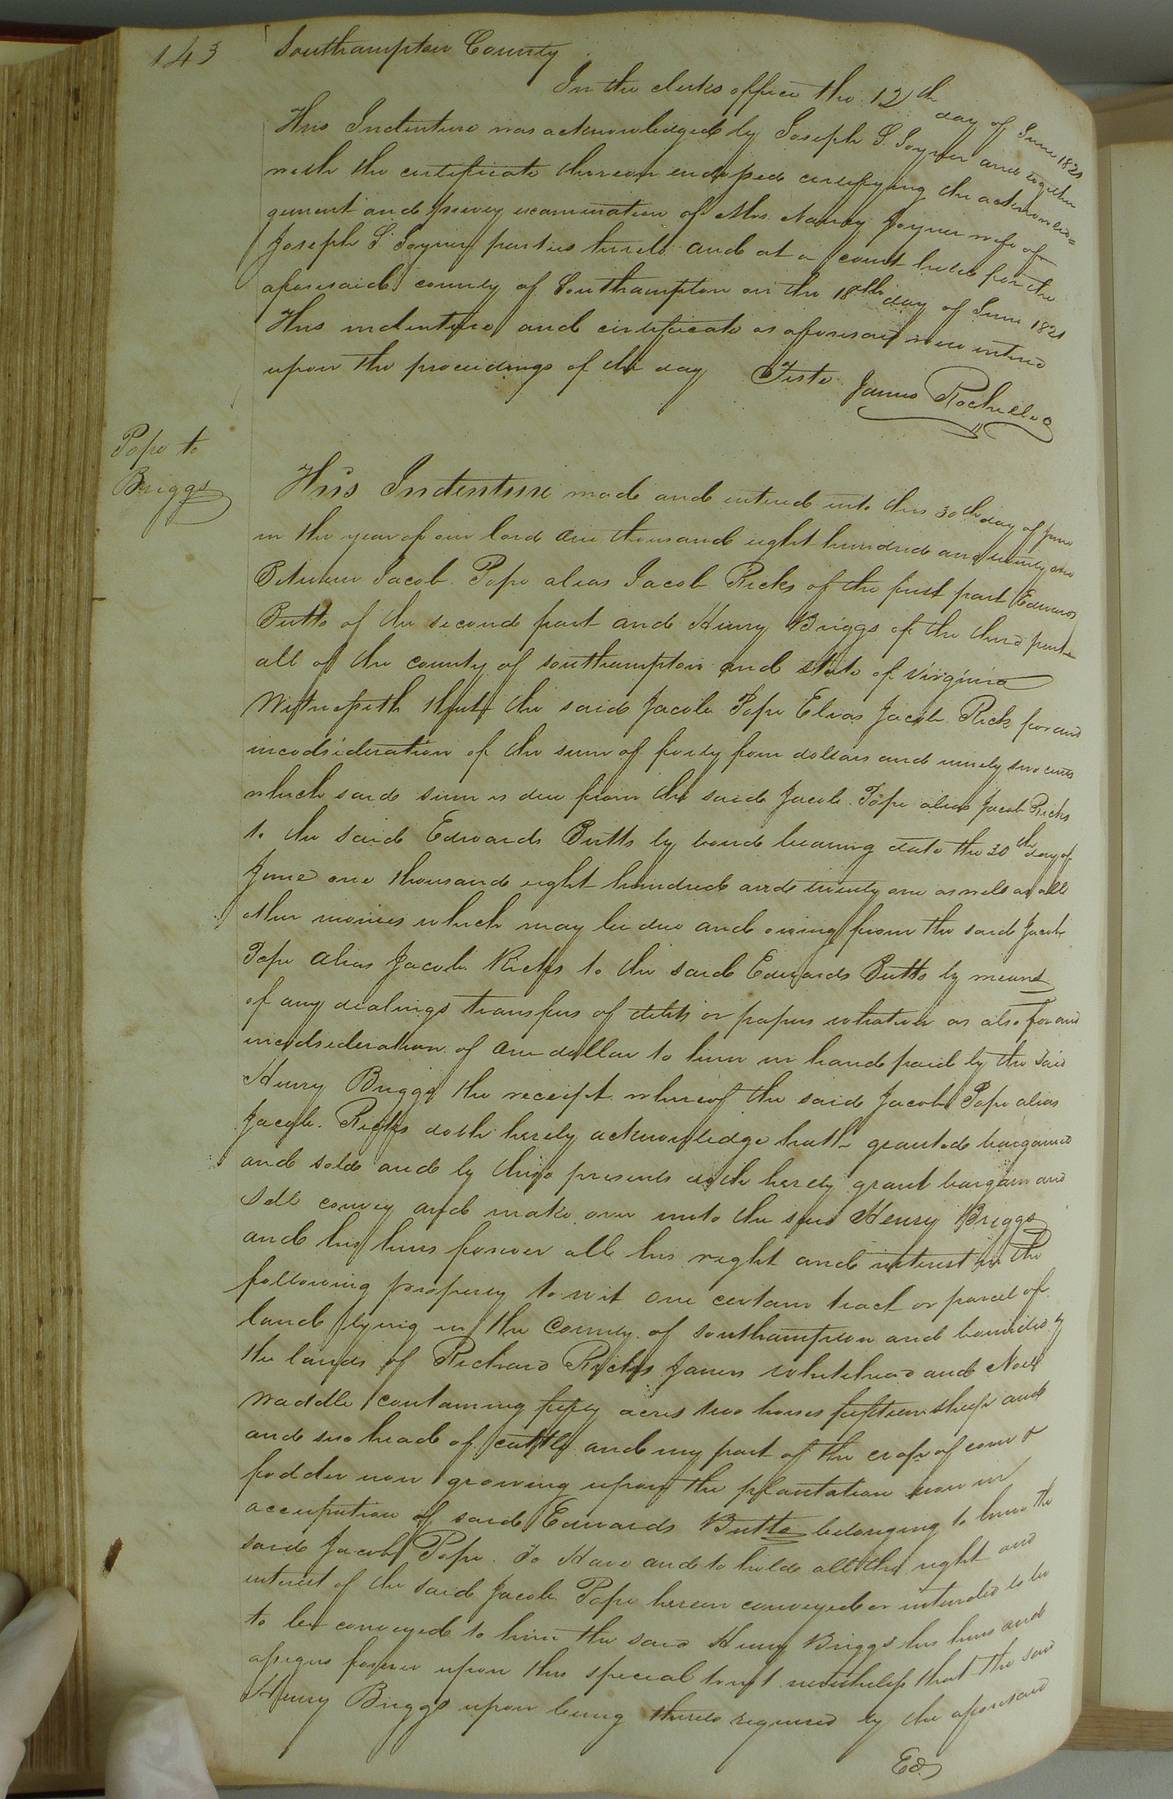 143
Southampton County
In the clerks office the 12th day of June 1821
This Indenture was acknowledged by Joseph S Joyner and together
with the certificate thereon endorsed certifying the acknowled=
gement and privy examination of Mrs. Nancy Joyner wife of
Joseph S. Joyner parties hereto and at a court held for the
aforesaid county of Southampton on the 18th day of June 1821
This indenture and certificate as aforesaid were enterd
upon the proceedings of the day Teste James Rochelle c
Pope to
Briggs
This Indenture made and entered into this 30th day of June
in the year of our lord one thousand eight hundred and twenty one
Between Jacob Pope alias Jacob Ricks of the first part Edwards
Butts of the second part and Henry Briggs of the third part
all of the county of southampton and state of virginia
Witnesseth that the said Jacob Pope Elias Jacob Rick for and
incodsideration of the sum of forty four dollars and ninety two cents
which said sum is due from the said Jacob Pope alias Jacob Ricks
to the said Edwards Butts by bond bearing date the 30th day of
June one thousand eight hundred and twenty one as well as all
other monies which may be due and owing from the said Jacob
Pope alias Jacob Ricks to the said Edwards Butts by means
of any dealings transfers of debts or papers whatever as also for and
incodsideration of one dollar to him in hand paid by the said
Henry Briggs the receipt whereof the said Jacob Pope alias
Jacob. Ricks doth hereby acknowledge hath granted bargained
and sold and by these presents doth hereby grant bargain and
sell convey and make over unto the said Henry Briggs
and his heirs forever all his right and interest in the
following property to wit one certain tract or parcel of
land lying in the County of southampton and bounded by
the lands of Richard Ricks James whitehead and Noel
Waddle containing fifty acres two horses fifteen sheep and
and two head of cattle and my part of the crop of corn &
fodder now growing upon the plantation now in
occupation of said Edwards Butts belonging to him the
said Jacob Pope. To Have and to hold all the right and
interest of the said Jacob Pope herein conveyed or intended to be
to be conveyed to him the said Henry Briggs his heirs and
assigns forever upon this special trust nevertheless that the said
Henry Briggs upon being thereto required by the aforesaid
Ed.